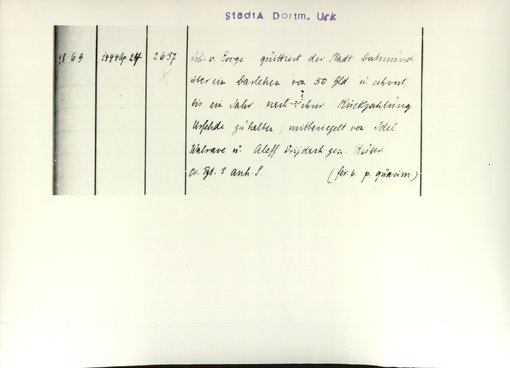 StadtA Dortm. Urk
1869 1444 Ap 24 2637 Joh. v. Berge quittiert der Stadt Dortmund
über ein Darlehen von 50 Gld u. schwört,
bis ein Jahr nach ihrer Rückzahlung
Urfehde zu halten, mitbesiegelt von Idel
Walrave u. Aleff gen. Rüter
Or. Pgt. 3 anh. S. (fer. 6. p. quasim)